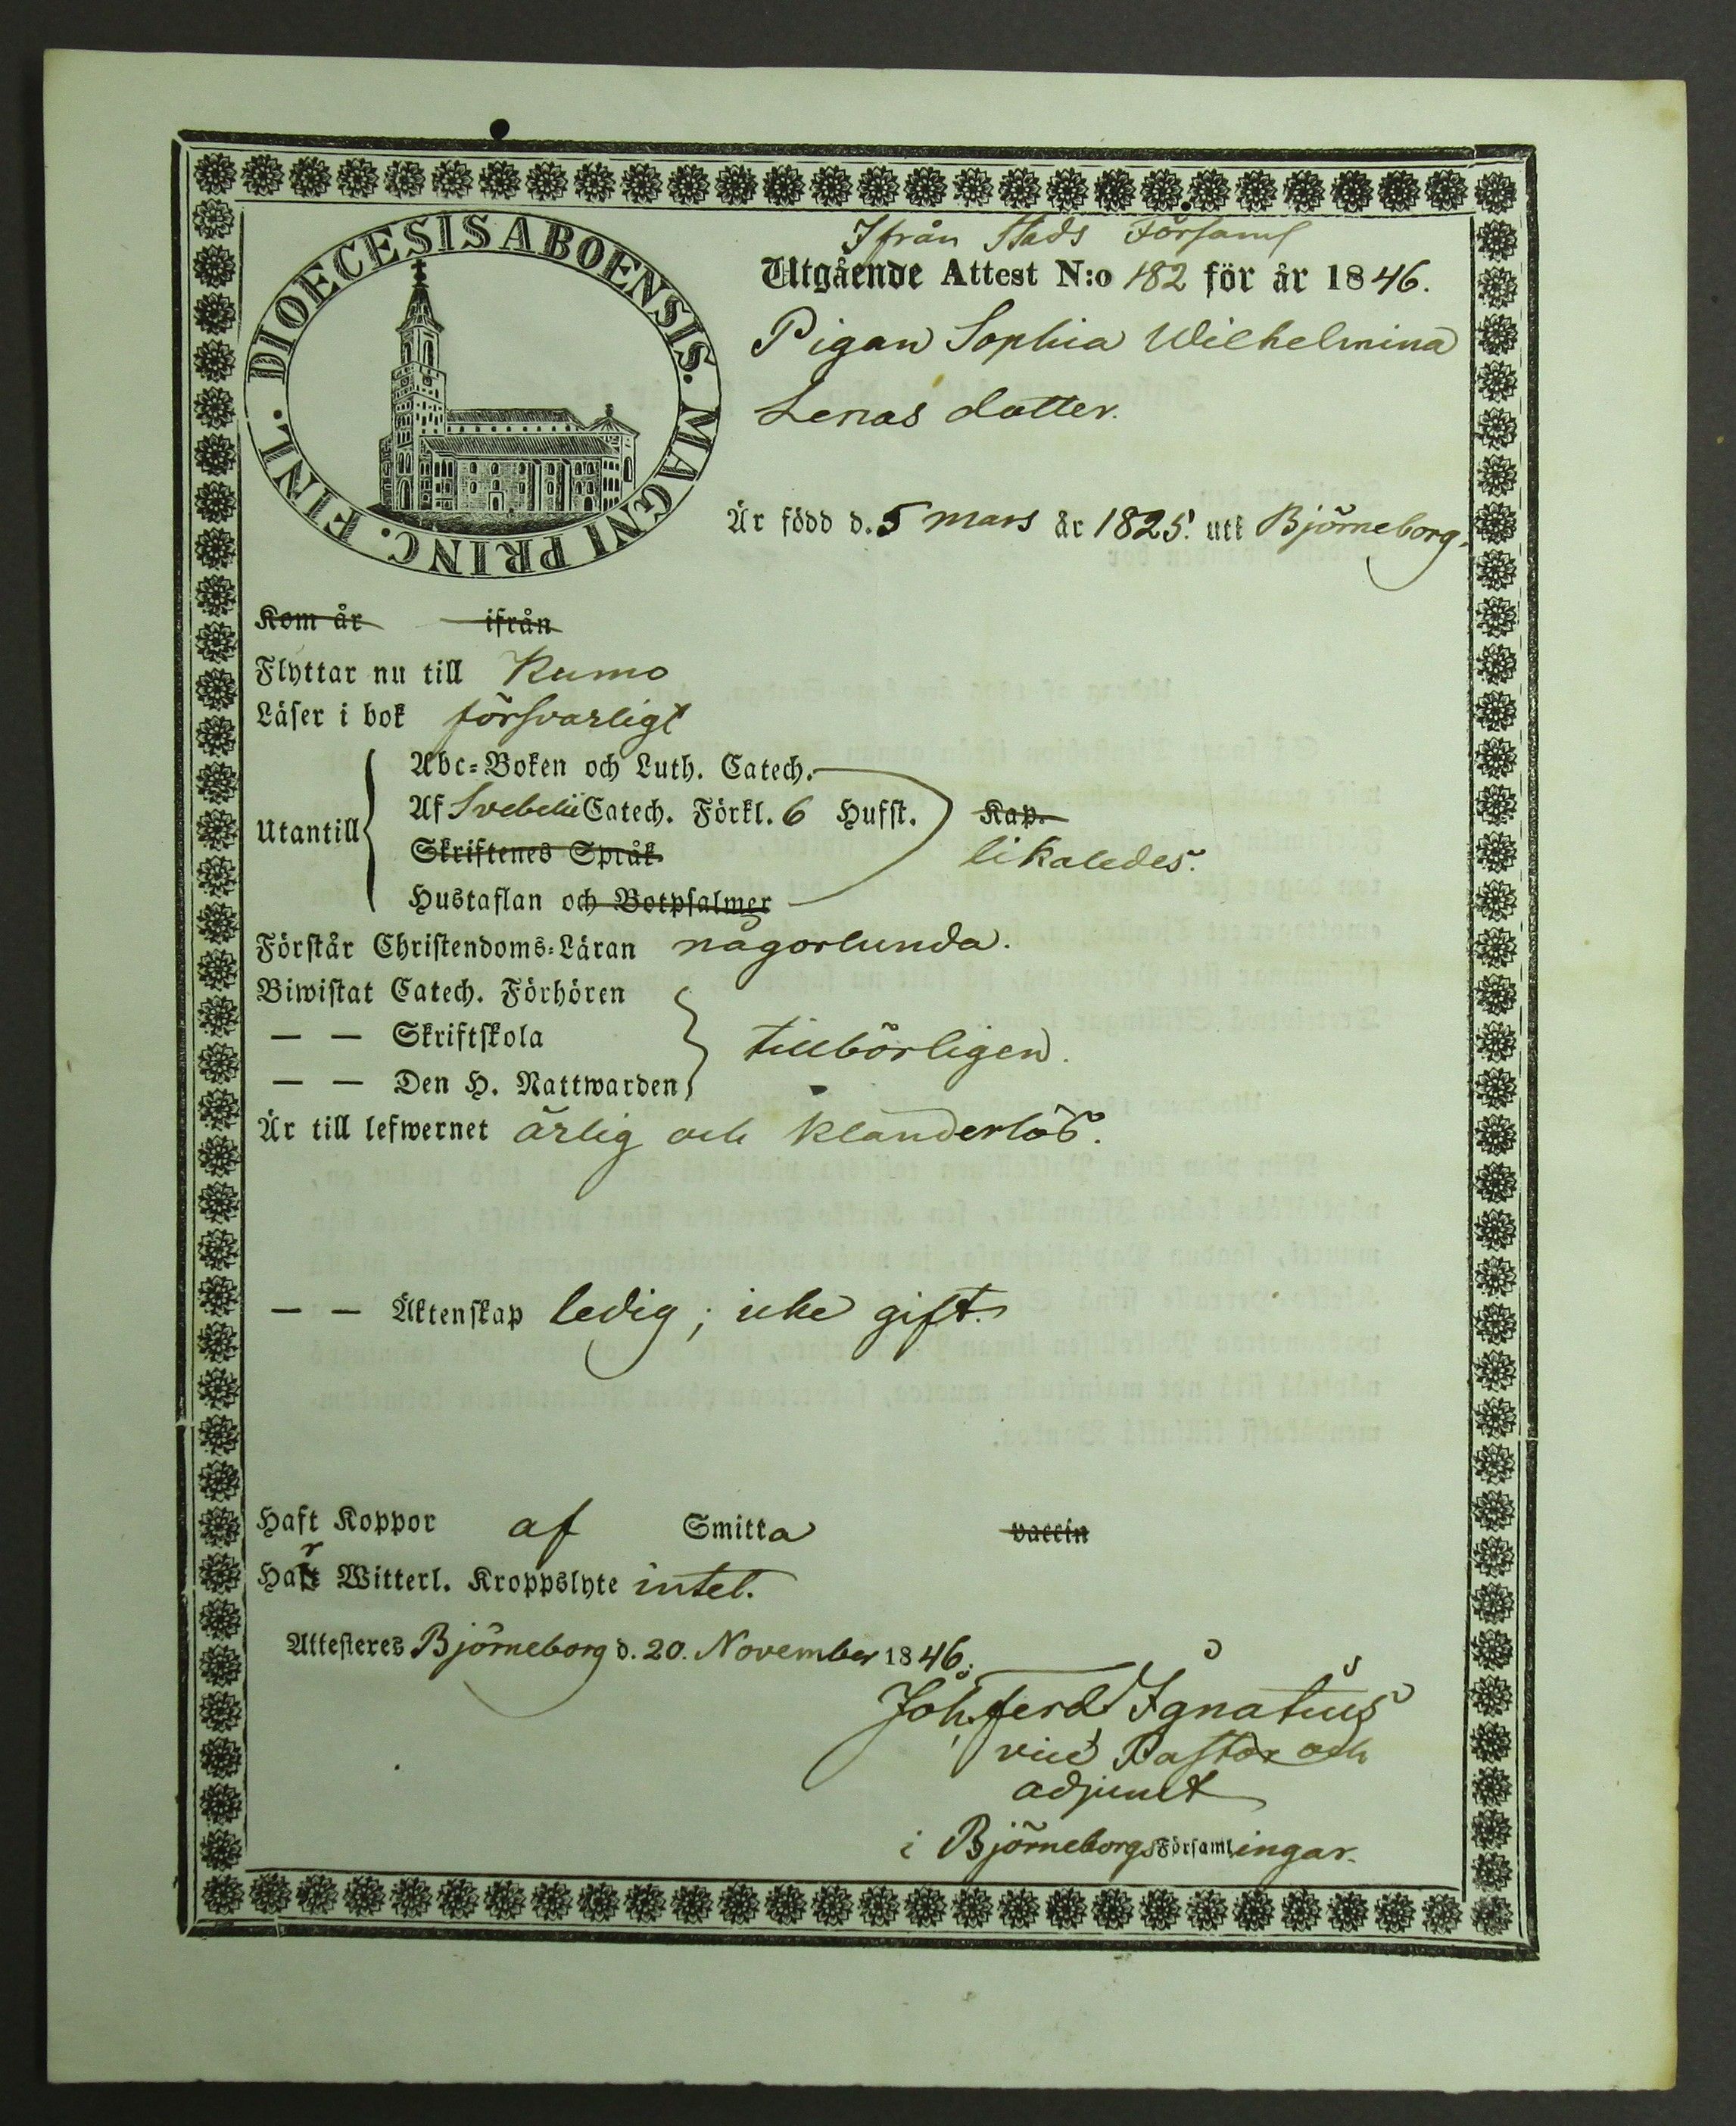 DIOECESIS ABOENSIS. MAGNI PRINC. FINL.
Ifrån Stads Församl
Utgående Attest N:o 182 för år 1846.
Pigan Sophia Wilhelmina
Lenas dotter.
Är född d. 5 mars år 1825. uti Björneborg.
Kom år ifrån
Flyttar nu till Kumo
Läser i bok försvarligt
Utantill
Abc-Boken och Luth. Catech.
Af Svebelii Catech. Förkl. 6 Hufst. Kap.
Skriftenes Språk likaledes.
Hustaflan och Botpsalmer
Förstår Christendoms-Läran någorlunda.
Biwistat Catech. Förhören
— — Skriftskola tillbörligen.
— — Den H. Nattwarden
Är till lefwernet ärlig och klanderlös.
— — Äktenskap ledig; icke gift.
Haft Koppor af Smitta vaccin
Har Witterl. Kroppslyte intet.
Attesteres Björneborg d. 20. November 1846.
Joh. Ferd. Ignatius
vice Pastor och
adjunct
i Björneborgs Församlingar.